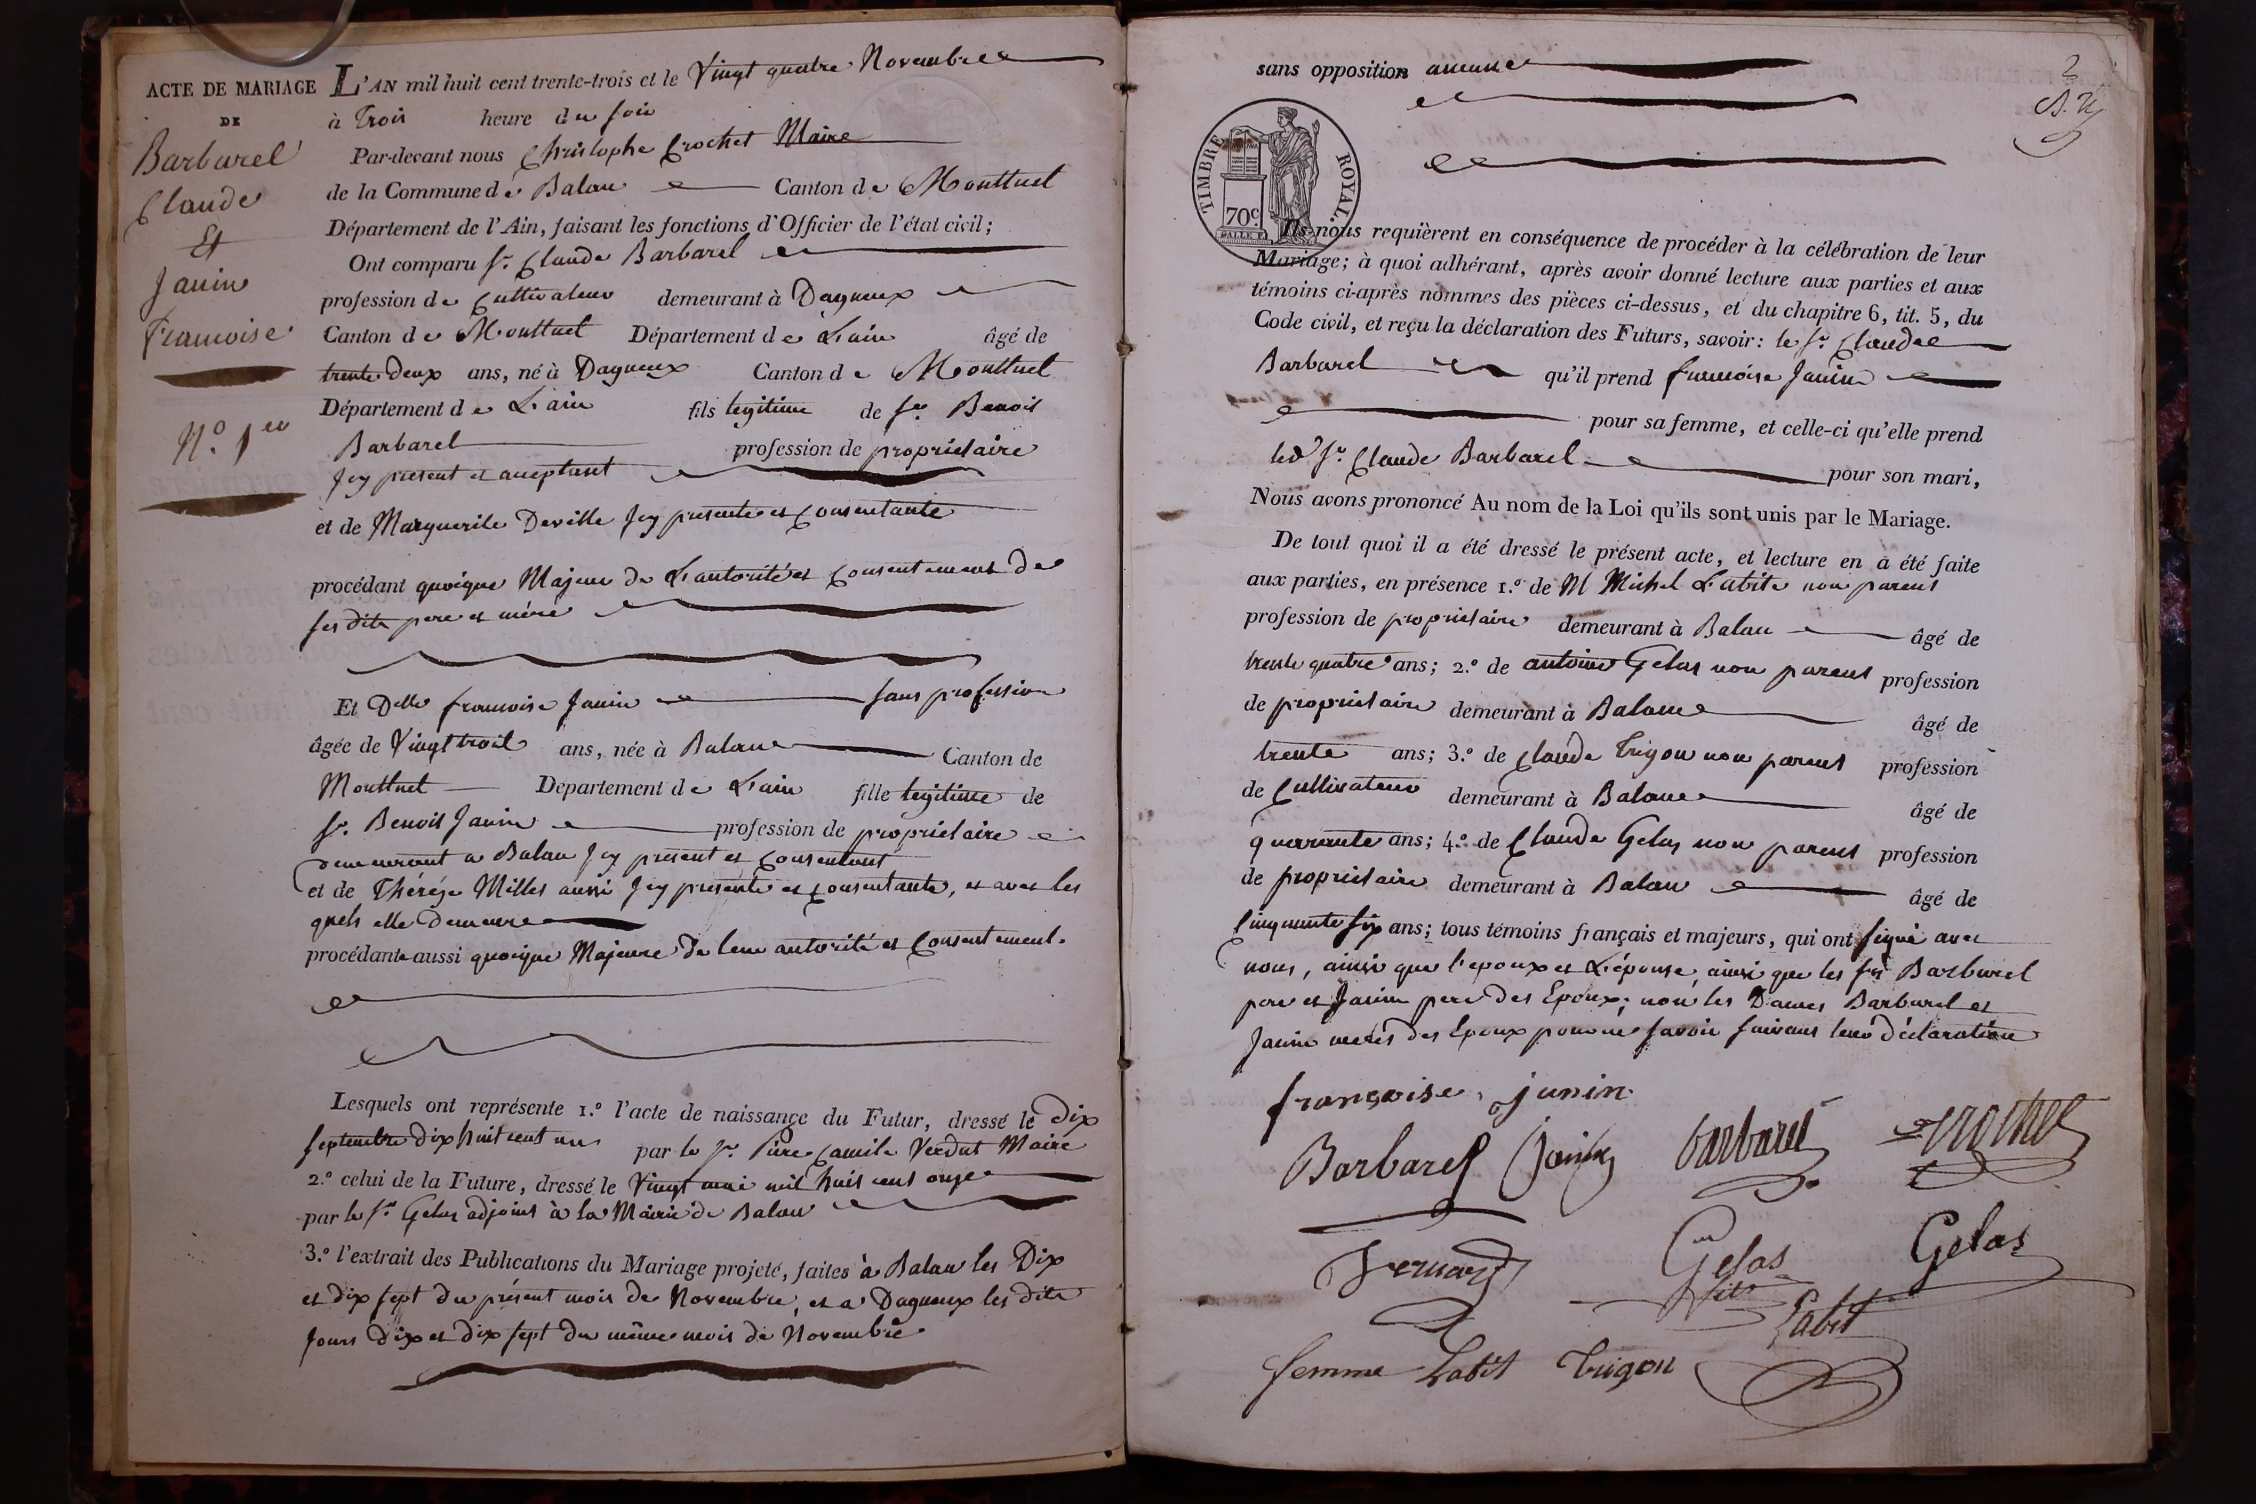 ACTE DE MARIAGE
DE
Barbarel
Claude
Et
Janin
Francoise
N.o 1er
L'AN mil huit cent trente-trois et le Vingt quatre Novembre
à Trois heure du soir
Par-devant nous Christophe Crochet Maire
de la Commune de Balan Canton de Montluel
Département de l'Ain, faisant les fonctions d'Officier de l'état civil;
Ont comparu Sr. Claude Barbarel
profession de Cultivateur demeurant à Dagneux
Canton de Montluel Département de L'ain âgé de
trente deux ans, né à Dagneux Canton de Montluel
Département de L'ain fils legitime de Sr. Benoit
Barbarel profession de propriétaire
Icy present et acceptant
et de Marguerite Deville Icy presente et Consentante
procédant quoique Majeur de L'autorité et Consentement de
ses dits pere et mère
Et Delle francoise Janin sans profession
âgée de Vingt trois ans, née à Balan Canton de
Montluel Département de L'ain fille legitime de
Sr. Benoit Janin profession de propriétaire
demeurant a Balan Icy present et Consentant
et de Thérése Milles aussi Icy presente et consentante, et avec les
quels elle demeure
procédante aussi quoique Majeure de leur autorité et Consentement.
Lesquels ont représenté 1.o l'acte de naissance du Futur, dressé le Dix
septembre dix huit cent un par le Sr. Piere Camile Verdat Maire
2.o celui de la Future, dressé le Vingt mai mil huit cent onze
par le Sr. Gelas adjoint à la Mairie de Balan
3.o l'extrait des Publications du Mariage projeté, faites à Balan les Dix
et dix sept du présent mois de Novembre, et a Dagneux les dits
Jours dix et dix sept du même mois de Novembre.
2
sans opposition aucune
TIMBRE ROYAL.
70c.
Ils nous requièrent en conséquence de procéder à la célébration de leur
Mariage; à quoi adhérant, après avoir donné lecture aux parties et aux
témoins ci-après nommes des pièces ci-dessus, et du chapitre 6, tit. 5, du
Code civil, et reçu la déclaration des Futurs, savoir: le Sr. Claude
Barbarel qu'il prend francoise Janin
pour sa femme, et celle-ci qu'elle prend
led Sr. Claude Barbarel pour son mari,
Nous avons prononcé Au nom de la Loi qu'ils sont unis par le Mariage.
De tout quoi il a été dressé le présent acte, et lecture en a été faite
aux parties, en présence 1.o de M Michel Labite non parent
profession de propriétaire demeurant à Balan âgé de
trente quatre ans; 2.o de antoine Gelas non parent profession
de propriétaire demeurant à Balan âgé de
trente ans; 3.o de Claude Trigon non parent profession
de Cultivateur demeurant à Balan âgé de
quarante ans; 4.o de Claude Gelas non parent profession
de propriétaire demeurant à Balan âgé de
Cinquante six ans; tous témoins français et majeurs, qui ont signé avec
nous, ainsi que l'epoux et L'épouse, ainsi que les srs Barbarel
pere et Janin pere des Epoux; non les Dames Barbarel et
Janin meres des Epoux pour ne savoir suivant leur déclaration
françoise janin
Barbarel Janin barbarel Crochet
Gelas fils Gelas
Labit
femme Labit Trigon